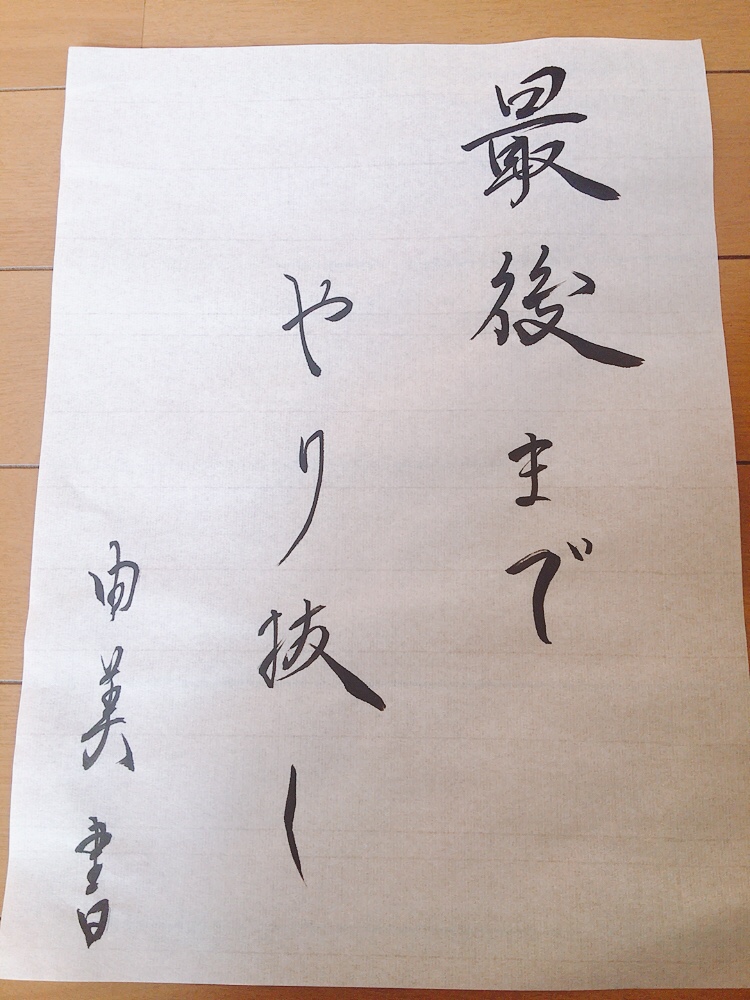 最後まで
やり抜し
由美書